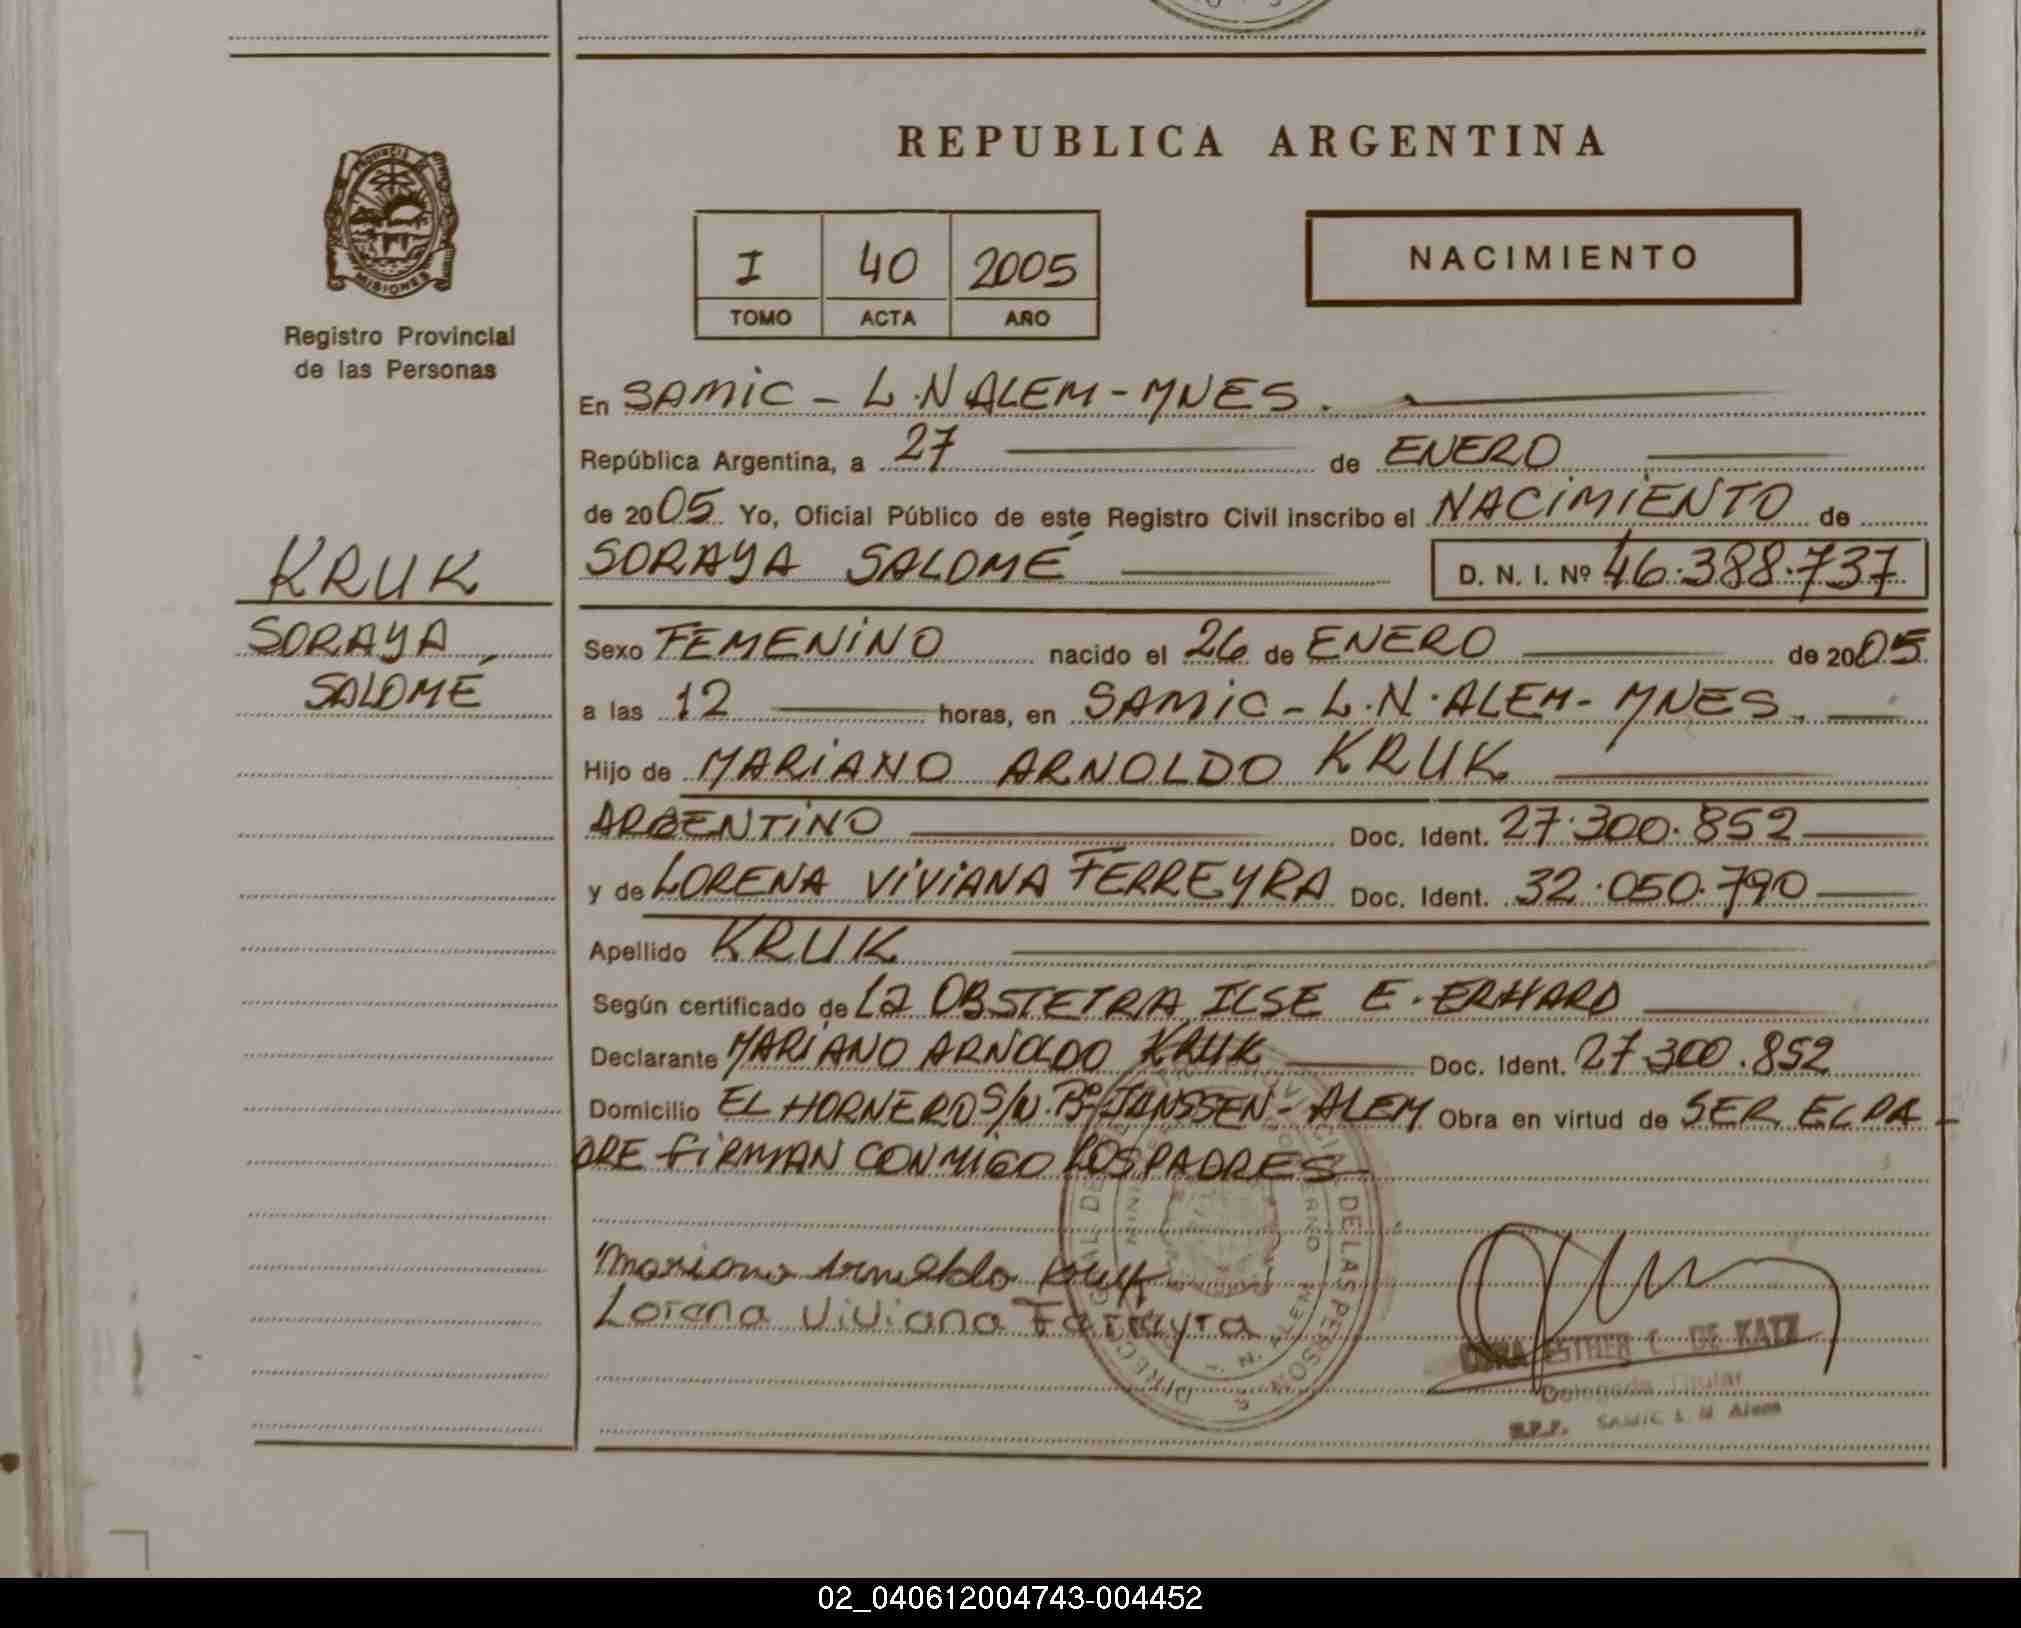 REPUBLICA ARGENTINA
PROVINCIA DE MISIONES
Registro Provincial
de las Personas
I 40 2005
TOMO ACTA AÑO
NACIMIENTO
En SAMIC - L.N ALEM - MNES.
República Argentina, a 27 de ENERO
de 2005 Yo, Oficial Público de este Registro Civil inscribo el NACIMIENTO de
SORAYA SALOMÉ D. N. I. Nº 46.388.737
KRUK
SORAYA
SALOMÉ
Sexo FEMENINO nacido el 26 de ENERO de 2005
a las 12 horas, en SAMIC - L.N. ALEM - MNES.
Hijo de MARIANO ARNOLDO KRUK
ARGENTINO Doc. Ident. 27.300.852
y de LORENA VIVIANA FERREYRA Doc. Ident. 32.050.790
Apellido KRUK
Según certificado de La OBSTETRA ILSE E. ERHARD
Declarante MARIANO ARNOLDO KRUK Doc. Ident. 27.300.852
Domicilio EL HORNERO S/N. Bº JANSSEN - ALEM Obra en virtud de SER EL PA-
DRE FIRMAN CONMIGO LOS PADRES
Mariano Arnoldo Kruk
Lorena Viviana Ferreyra
DE LAS PERSONAS
L. N. ALEM
ESTHER C. DE KATZ
Delegada Titular
R.P.P. SAMIC L N Alem
02_040612004743-004452